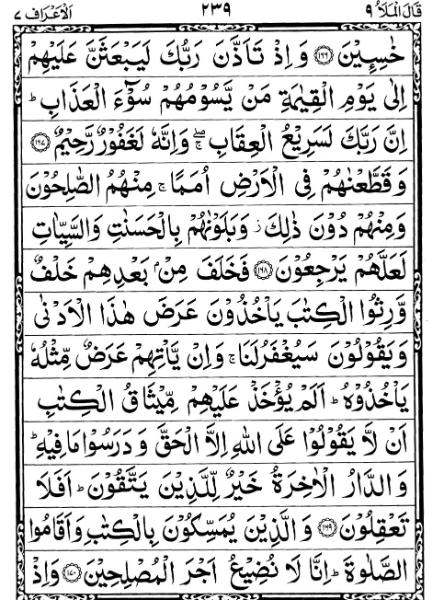 قَالَ الْمَلَاُ ٩ ٢٣٩ اَلْاَعْرَاف ٧
خٰسِـِٕيْنَ ﴿١٦٦﴾ وَ اِذْ تَاَذَّنَ رَبُّكَ لَيَبْعَثَنَّ عَلَيْهِمْ
اِلٰى يَوْمِ الْقِيٰمَةِ مَنْ يَّسُوْمُهُمْ سُوْٓءَ الْعَذَابِ ؕ
اِنَّ رَبَّكَ لَسَرِيْعُ الْعِقَابِ ۚۖ وَاِنَّهٗ لَغَفُوْرٌ رَّحِيْمٌ ﴿١٦٧﴾
وَ قَطَّعْنٰهُمْ فِى الْاَرْضِ اُمَمًا ۚ مِنْهُمُ الصّٰلِحُوْنَ
وَمِنْهُمْ دُوْنَ ذٰلِكَ ؗ وَبَلَوْنٰهُمْ بِالْحَسَنٰتِ وَالسَّيِّاٰتِ
لَعَلَّهُمْ يَرْجِعُوْنَ ﴿١٦٨﴾ فَخَلَفَ مِنْۢ بَعْدِهِمْ خَلْفٌ
وَّرِثُوا الْكِتٰبَ يَاْخُذُوْنَ عَرَضَ هٰذَا الْاَدْنٰى
وَيَقُوْلُوْنَ سَيُغْفَرُلَنَا ۚ وَاِنْ يَّاْتِهِمْ عَرَضٌ مِّثْلُهٗ
يَاْخُذُوْهُ ؕ اَلَمْ يُؤْخَذْ عَلَيْهِمْ مِّيْثَاقُ الْكِتٰبِ
اَنْ لَّا يَقُوْلُوْا عَلَى اللّٰهِ اِلَّا الْحَقَّ وَ دَرَسُوْا مَا فِيْهِ ؕ
وَ الدَّارُ الْاٰخِرَةُ خَيْرٌ لِّلَّذِيْنَ يَتَّقُوْنَ ؕ اَفَلَا
تَعْقِلُوْنَ ﴿١٦٩﴾ وَ الَّذِيْنَ يُمَسِّكُوْنَ بِالْكِتٰبِ وَاَقَامُوا
الصَّلٰوةَ ؕ اِنَّا لَا نُضِيْعُ اَجْرَ الْمُصْلِحِيْنَ ﴿١٧٠﴾ وَاِذْ